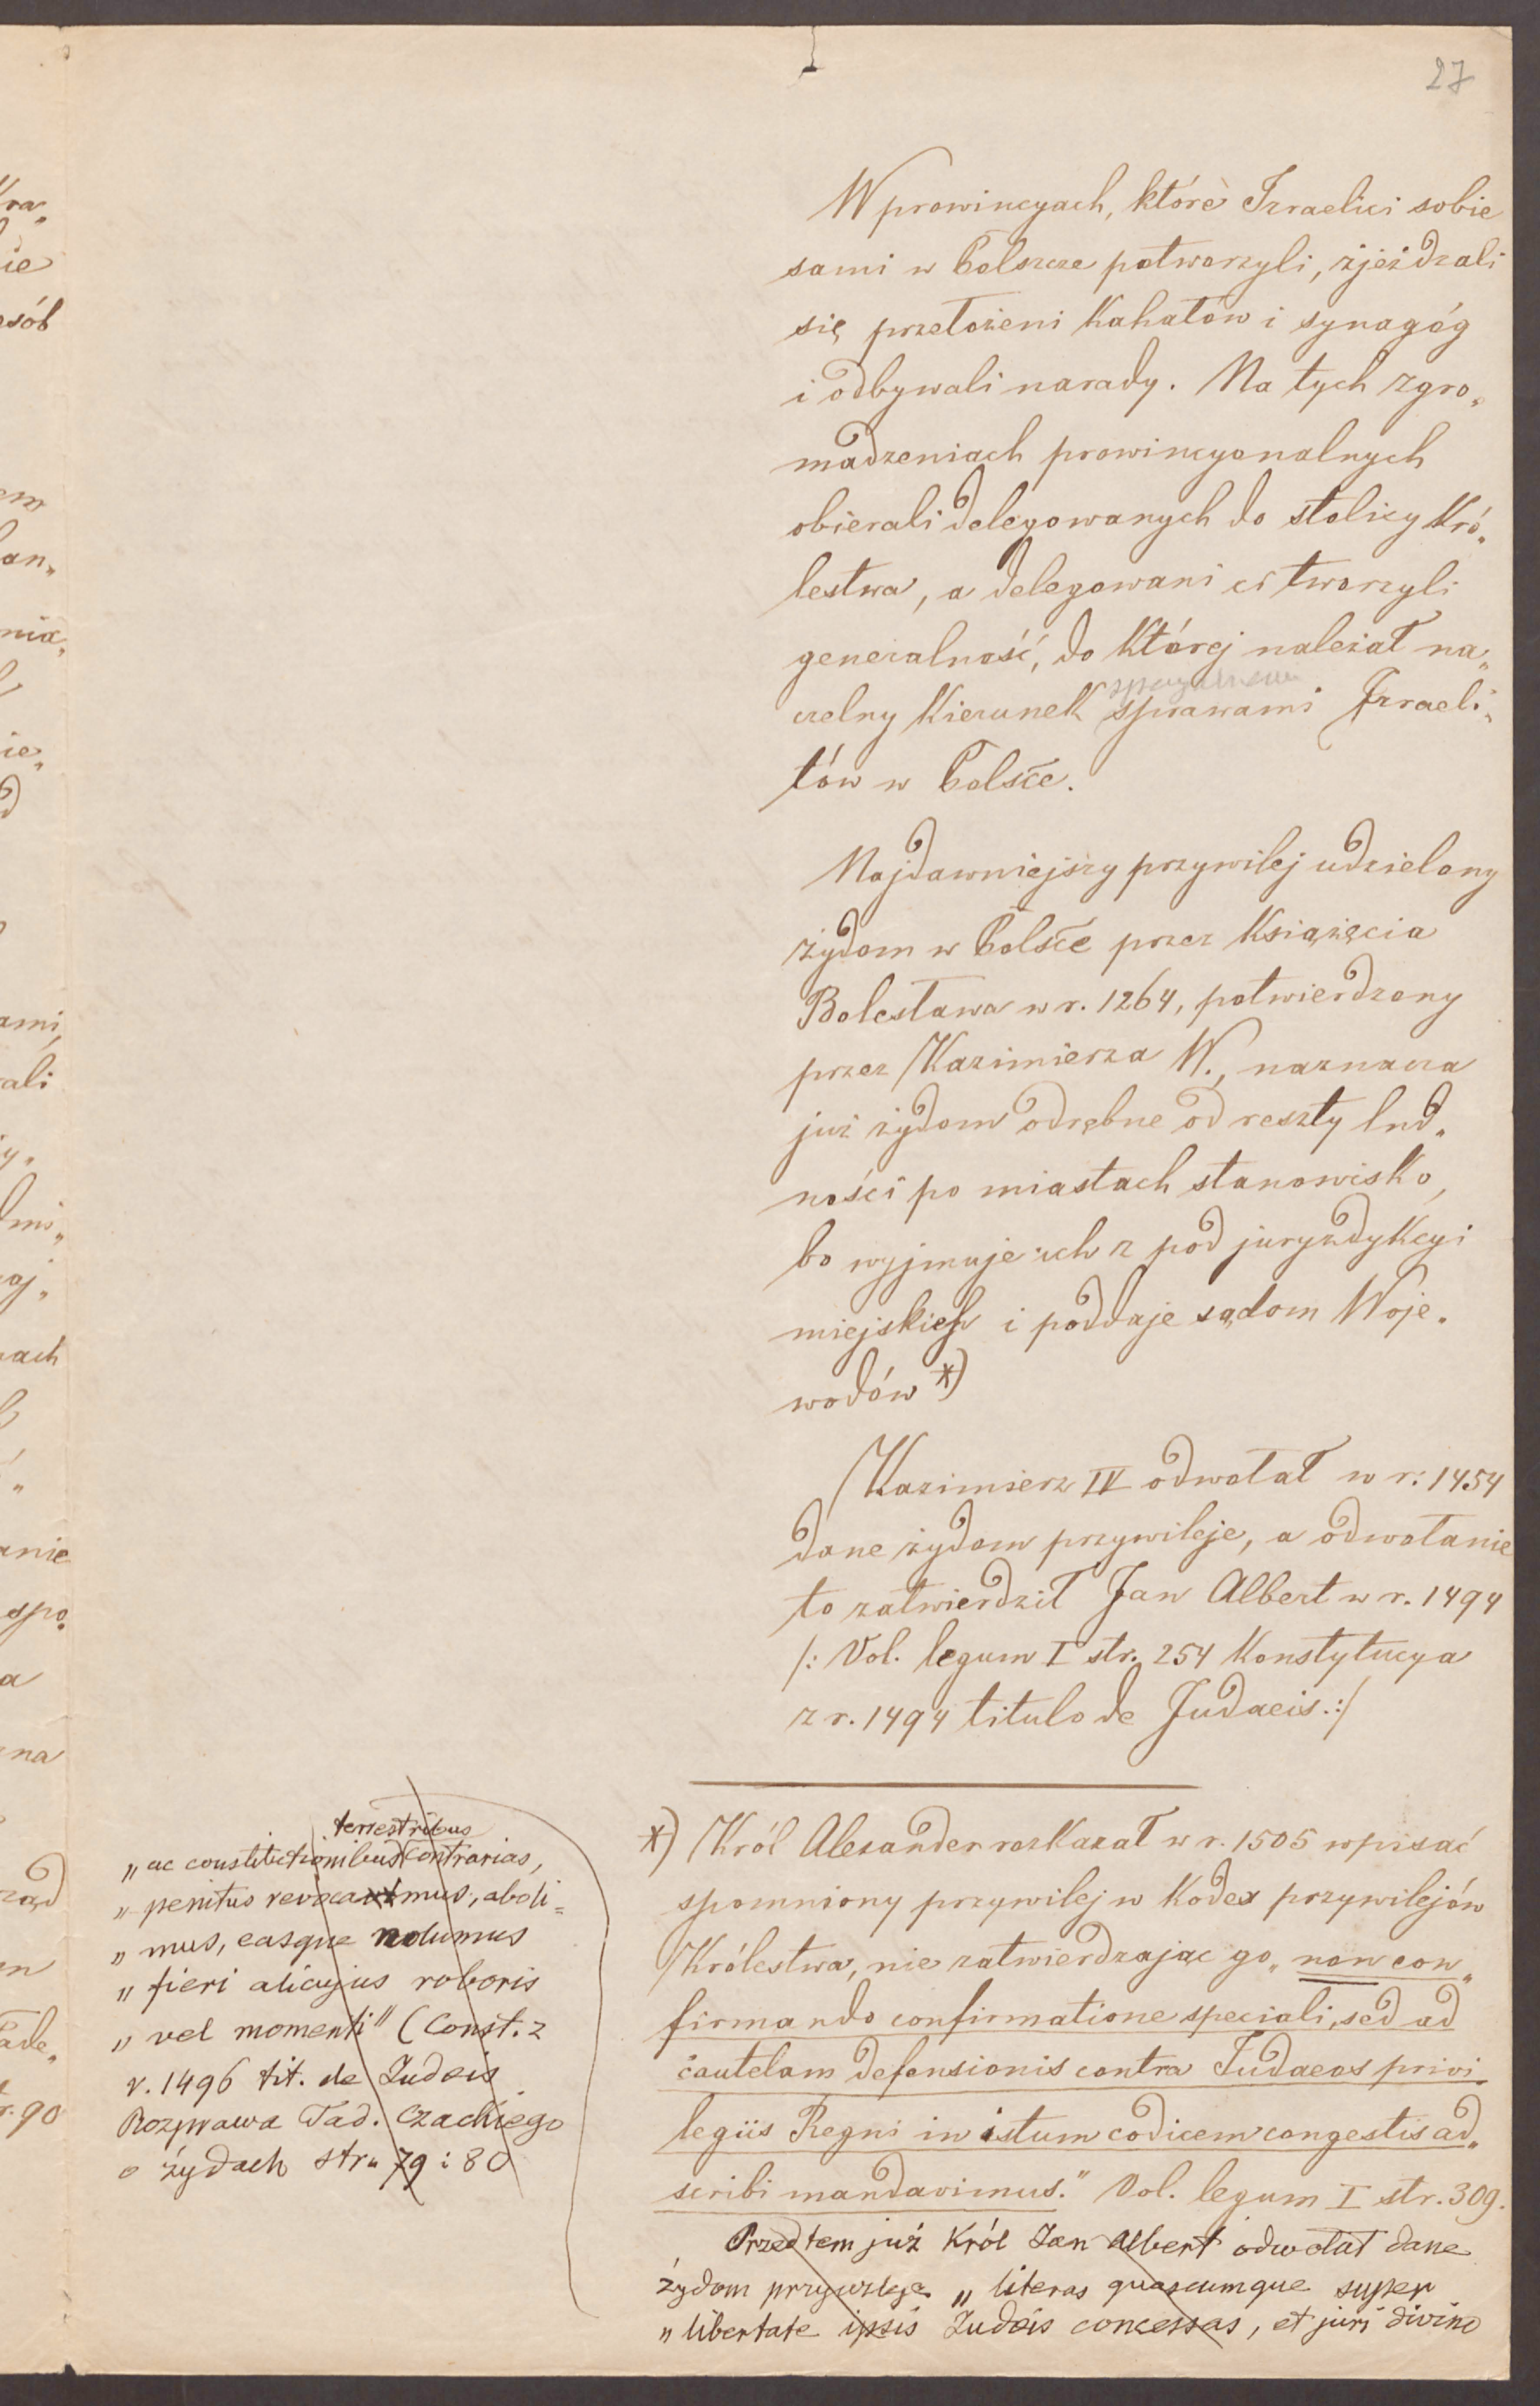 27
W prowincyach, które Izraelici sobie
sami w Polszcze potworzyli, zjeżdzali
się przełożeni Kahałów i synagóg
i odbywali narady. Na tych zgro„
madzeniach prowincyonalnych
obierali delegowanych do stolicy Kró„
lestwa, a delegowani ci tworzyli
generalność, do Której należał na„
czelny Kierunek sprawami Izraeli„
tów w Polsce.
Najdawniejszy przywilej udzielony
żydom w Polsce przez Książęcia
Bolesława w r. 1264, potwierdzony
przez Kazimierza W., naznacza
już żydom odrębne od reszty lud„
ności po miastach stanowisko,
bo wyjmuje ich z pod juryzdykcyi
miejskich i poddaje sądom Woje„
wodów *)
Kazimierz IV odwołał w r: 1454
dane żydom przywileje, a odwołanie
to zatwierdził Jan Albert w r. 1494
/: Vol. legum I str. 254 Konstytucya
z r. 1494 titulo de Judaeis.:/
*) Król Alexander rozkazał w r. 1505 wpisać
spomniony przywilej w Kodex przywilejów
Królestwa, nie zatwierdzając go „non con„
firmando confirmatione speciali, sed ad
cautelam defensionis contra Judaeos privi„
legiis Regni in istum codicem congestis ad„
scribi mandavimus." Vol. legum I str. 309.
Przedtem już Król Jan Albert odwołał dane
żydom przywileje „literas quascumque super
„libertate ipsis Judeis concessas, et juri divino
terrestribus
„ac constitutionibus contrarias,
„penitus revocamus, aboli=
„mus, easque nolumus
„fieri alicujus roboris
„vel momenti" (Const. z
r. 1496 tit. de Judeis
Rozprawa Tad. Czackiego
o żydach str. 79 i 80